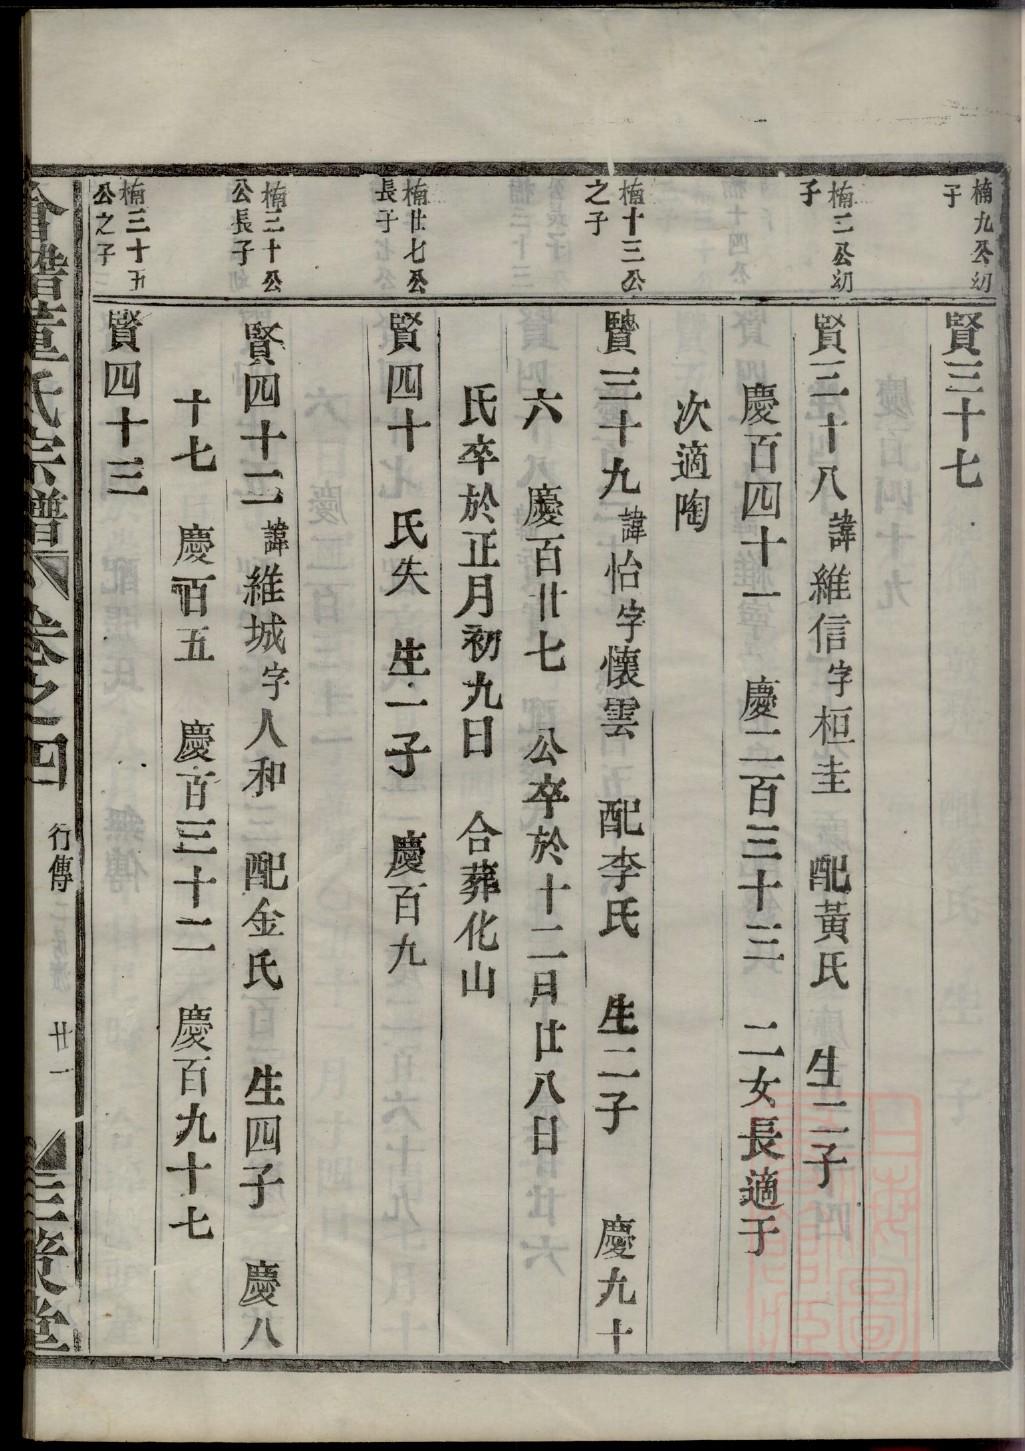 楠九公幼子
賢三十七
楠二公幼子
賢三十八諱維信字桓圭 配黃氏 生二子
慶百四十一 慶二百三十三 二女長適于
次適陶
楠十三公之子
賢三十九諱怡字懷雲 配李氏 生二子 慶九十
六 慶百廿七 公卒於十二月廿八日
氏卒於正月初九日 合葬化山
楠廿七公長子
賢四十 氏失 生一子 慶百九
楠三十公公長子
賢四十二諱維城字人和 配金氏 生四子 慶八
十七 慶百五 慶百三十二 慶百九十七
楠三十五公之子
賢四十三
合譜董氏宗譜 卷之四 行傳 廿一 三策堂